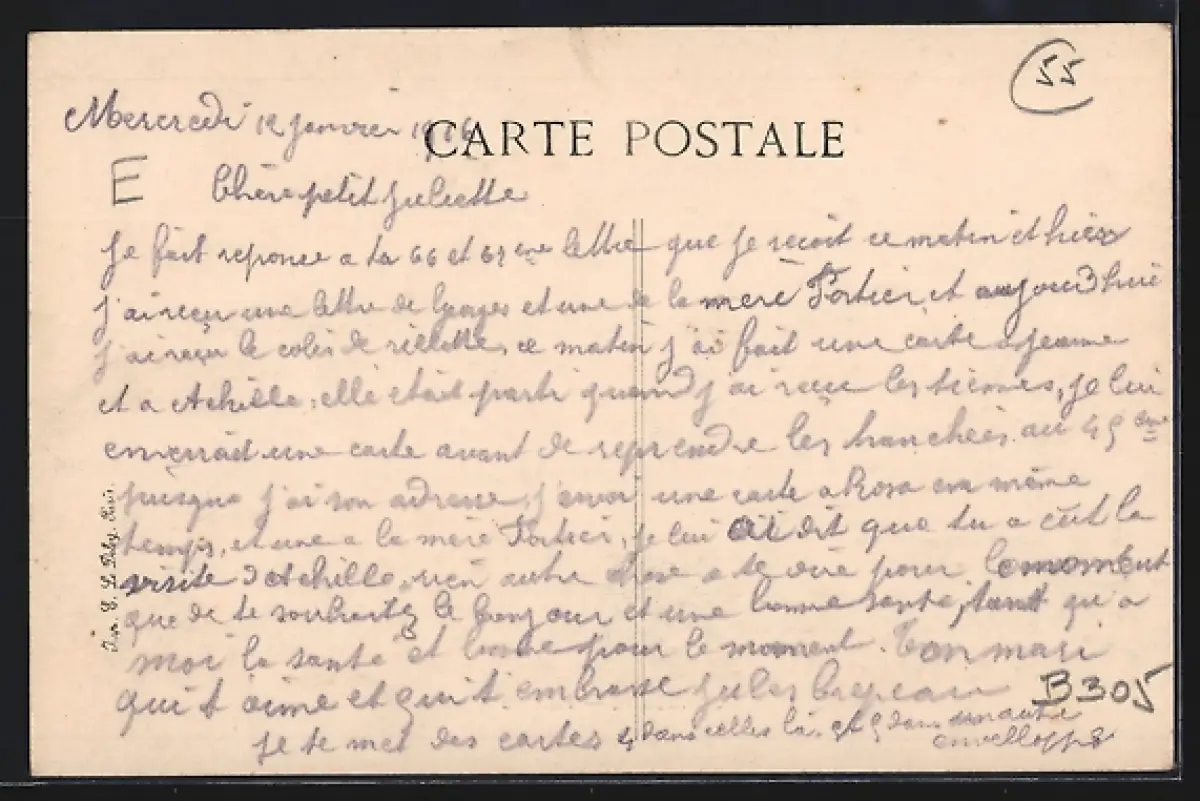 55
Mercredi 12 janvier 1916
CARTE POSTALE
E
Chère petit Juliette
Je fait reponce a ta 66 et 67 eme lettre que je recoit ce matin et hièr
j'ai recu une lettre de et une de la mère Portier et aujourd'hui
j'ai reçu le colis de rillettes, ce matin j'ai fait une carte a Jeanne
et a Achille, elle était parti quand j'ai recu les tiennes, je lui
enverrait une carte avant de reprendre les tranchées au 45 eme
puisque j'ai son adresse, j'envoi une carte a Rosa en même
temps, et une a la mère Portier, je lui ai dit que tu a eut la
visite d'Achille, rien autre chose a te dire pour le moment
que de te souhaitez le bonjour et une bonne santé, tant qu'a
moi la santé et bonne pour le moment. Ton mari
qui t'aime et qui t'embrasse Jules
B305
je te met des cartes 4 dans celles la et 5 dans une autre
envelloppe